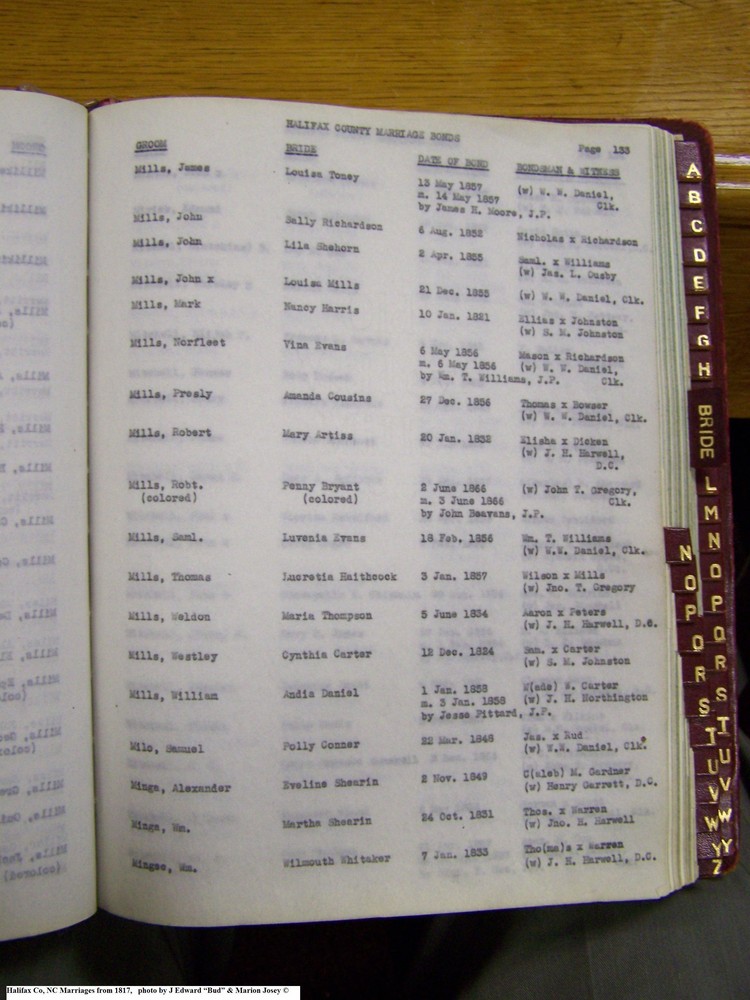 HALIFAX COUNTY MARRIAGE BONDS
Page 133
GROOM BRIDE DATE OF BOND BONDSMAN & WITNESS
Mills, James Louisa Toney 13 May 1857 (w) W. W. Daniel,
m. 14 May 1857 Clk.
by James H. Moore, J.P.
Mills, John Sally Richardson 6 Aug. 1832 Nicholas x Richardson
Mills, John Lila Shehorn 2 Apr. 1835 Saml. x Williams
(w) Jas. L. Ousby
Mills, John x Louisa Mills 21 Dec. 1855 (w) W. W. Daniel, Clk.
Mills, Mark Nancy Harris 10 Jan. 1821 Ellias x Johnston
(w) S. M. Johnston
Mills, Norfleet Vina Evans 6 May 1856 Mason x Richardson
m. 6 May 1856 (w) W. W. Daniel,
by Wm. T. Williams, J.P. Clk.
Mills, Presly Amanda Cousins 27 Dec. 1856 Thomas x Bowser
(w) W. W. Daniel, Clk.
Mills, Robert Mary Artiss 20 Jan. 1832 Elisha x Dicken
(w) J. H. Harwell,
D.C.
Mills, Robt. Penny Bryant 2 June 1866 (w) John T. Gregory,
(colored) (colored) m. 3 June 1866 Clk.
by John Beavans, J.P.
Mills, Saml. Luvenia Evans 18 Feb. 1856 Wm. T. Williams
(w) W.W. Daniel, Clk.
Mills, Thomas Lucretia Haithcock 3 Jan. 1857 Wilson x Mills
(w) Jno. T. Gregory
Mills, Weldon Maria Thompson 5 June 1834 Aaron x Peters
(w) J. H. Harwell, D.C.
Mills, Westley Cynthia Carter 12 Dec. 1824 Sam. x Carter
(w) S. M. Johnston
Mills, William Andia Daniel 1 Jan. 1858 W(ade) W. Carter
m. 3 Jan. 1858 (w) J. H. Northington
by Jesse Pittard, J.P.
Milo, Samuel Polly Conner 22 Mar. 1848 Jas. x Rud
(w) W.W. Daniel, Clk.
Minga, Alexander Eveline Shearin 2 Nov. 1849 C(aleb) M. Gardner
(w) Henry Garrett, D.C.
Minga, Wm. Martha Shearin 24 Oct. 1831 Thos. x Warren
(w) Jno. H. Harwell
Mingae, Wm. Wilmouth Whitaker 7 Jan. 1833 Tho(ma)s x Warren
(w) J. H. Harwell, D.C.
A
B
C
D
E
F
G
H
BRIDE
L
M
N
O
P
Q
R
S
T
U
V
W
Y
Z
N
O
P
Q
R
S
T
U
V
W
Y
Z
Halifax Co, NC Marriages from 1817, photo by J Edward “Bud” & Marion Josey ©